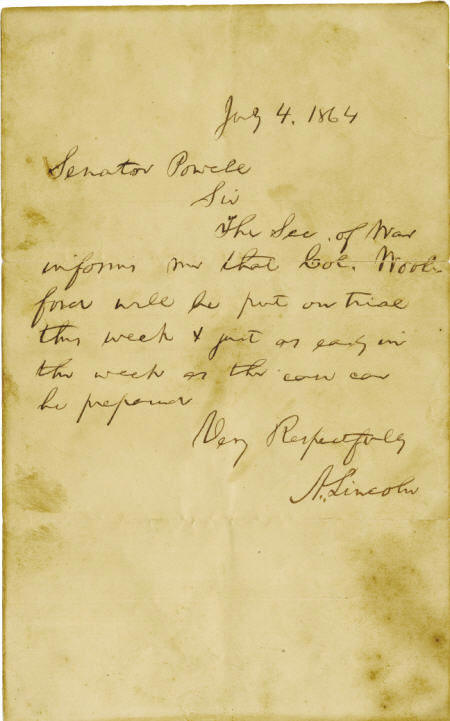 July 4. 1864
Senator Powell
Sir
The Sec. of War
informs me that Col. Wool-
ford will be put on trial
this week & just as early in
the week as the case can
be prepared
Very Respectfully
A. Lincoln